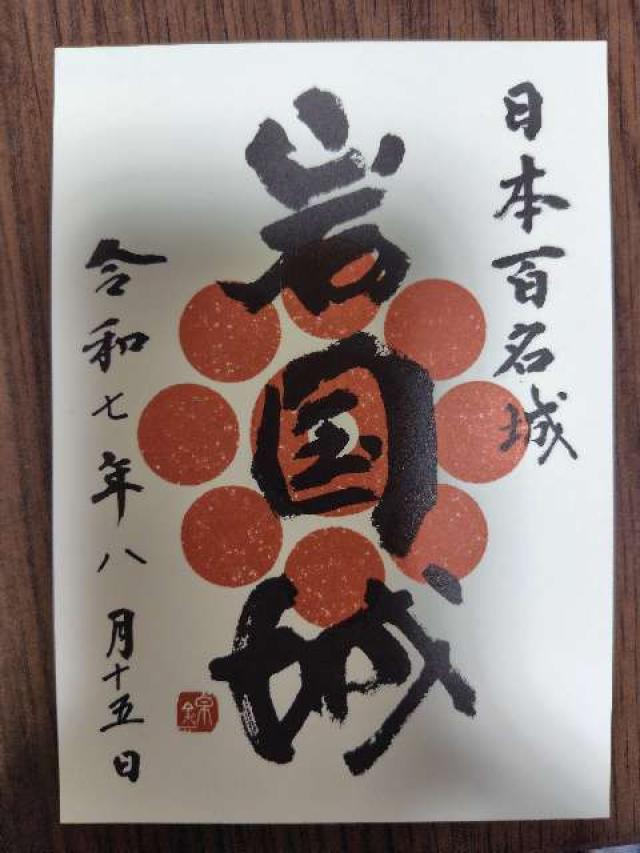 日本百名城
岩国城
令和七年八月十五日